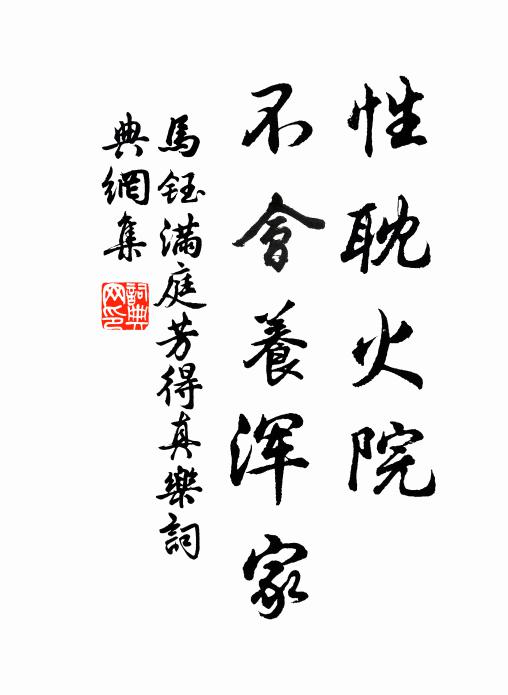 性耽火院
不會養浑家
馬鈺滿庭芳得真樂詞
典網集
詞典网印